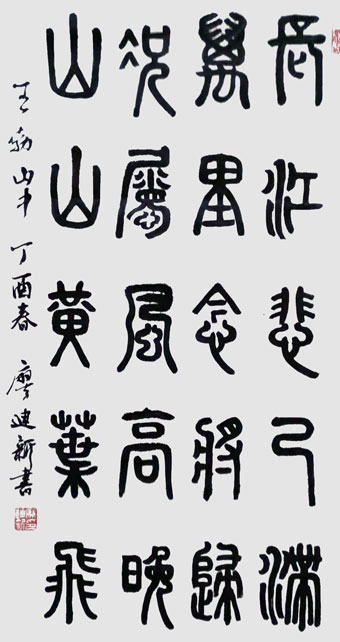 長江悲已滯
萬里念將歸
況屬風高晚
山山黄葉飛
王勃山中 丁酉春 廖建新書